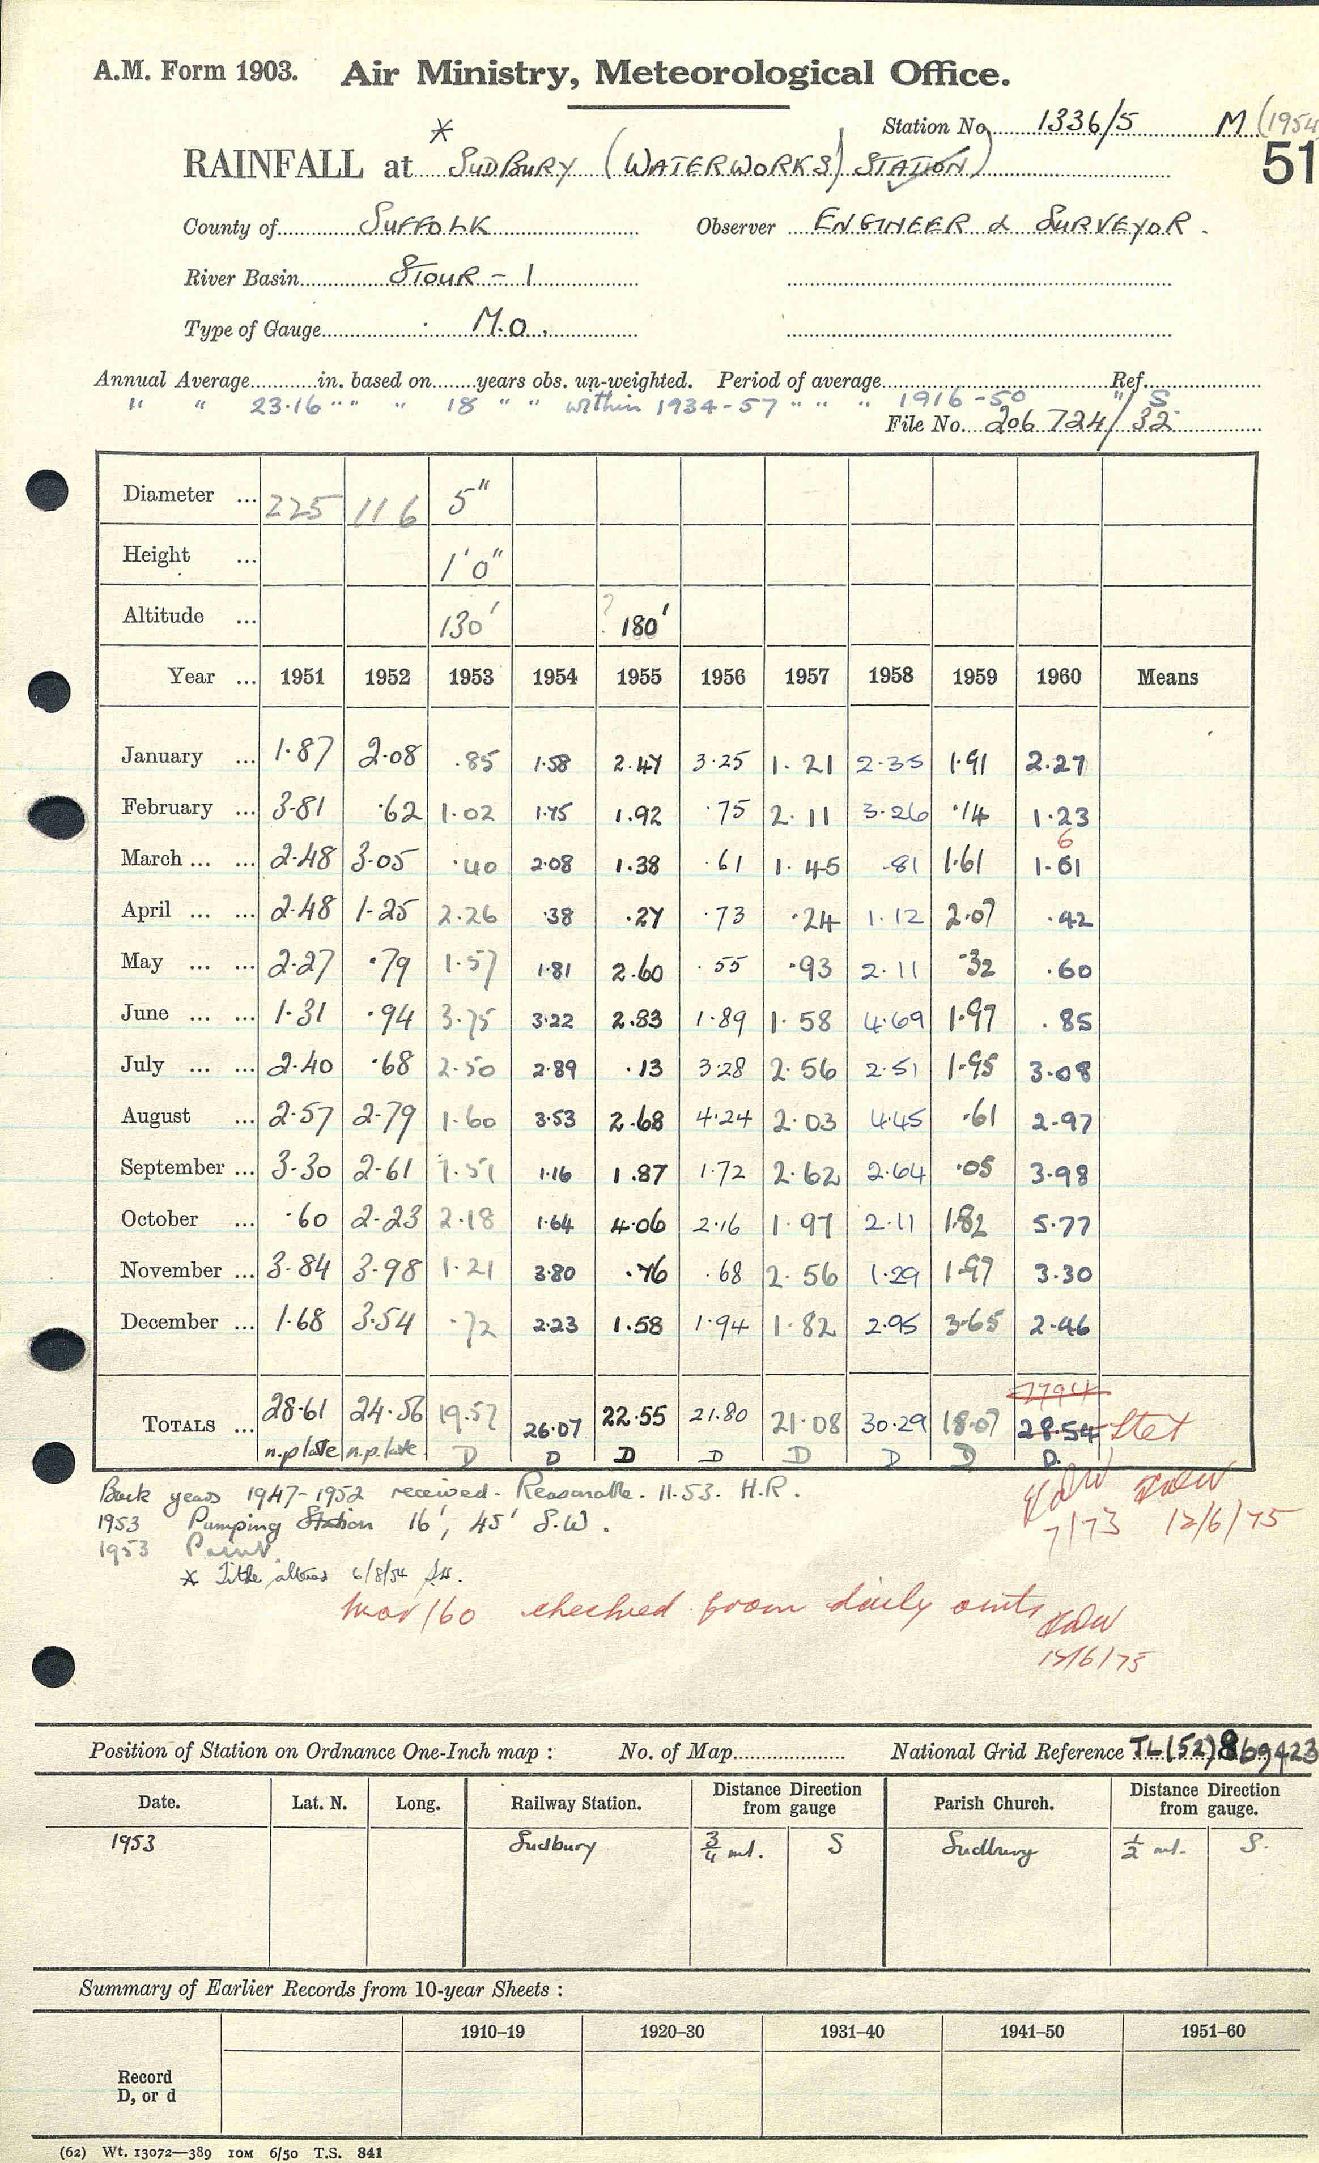 A.M. Form 1903. Air Ministry, Meteorological Office.
Station No. 1336/5 M (1954
* 51
RAINFALL at SUDBURY (WATERWORKS) STATION)
County of SUFFOLK Observer ENGINEER & SURVEYOR.
River Basin STOUR - 1
Type of Gauge M.O.
Annual Average in. based on years obs. un-weighted. Period of average Ref.
" " 23.16 " " " 18 " " within 1934-57 " " " 1916-50 " S.
File No. 206724/32
Diameter ... 225 116 5"
Height ... 1'0"
Altitude ... 130' ? 180'
Year ... 1951 1952 1953 1954 1955 1956 1957 1958 1959 1960 Means
January ... 1.87 2.08 .85 1.58 2.47 3.25 1.21 2.35 1.91 2.27
February ... 3.81 .62 1.02 1.75 1.92 .75 2.11 3.26 .14 1.23
6
March ... ... 2.48 3.05 .40 2.08 1.38 .61 1.45 .81 1.61 1.61
April ... ... 2.48 1.25 2.26 .38 .27 .73 .24 1.12 2.07 .42
May ... ... 2.27 .79 1.57 1.81 2.60 .55 .93 2.11 .32 .60
June ... ... 1.31 .94 3.75 3.22 2.83 1.89 1.58 4.69 1.97 .85
July ... ... 2.40 .68 2.50 2.89 .13 3.28 2.56 2.51 1.95 3.08
August ... 2.57 2.79 1.60 3.53 2.68 4.24 2.03 4.45 .61 2.97
September ... 3.30 2.61 1.51 1.16 1.87 1.72 2.62 2.64 .05 3.98
October ... .60 2.23 2.18 1.64 4.06 2.16 1.97 2.11 1.82 5.77
November ... 3.84 3.98 1.21 3.80 .76 .68 2.56 1.29 1.97 3.30
December ... 1.68 3.54 .72 2.23 1.58 1.94 1.82 2.95 3.65 2.46
TOTALS ... 28.61 24.56 19.57 26.07 22.55 21.80 21.08 30.29 18.07 28.54 Stet
n.p late n.p. late D D D D D D D D.
Back years 1947-1952 received. Reasonable. 11.53. H.R.
1953 Pumping Station 16', 45' S.W.
7/73 12/6/75
1953
* Title altered 6/8/54
Mar/60 checked from daily amts
12/6/75
Position of Station on Ordnance One-Inch map : No. of Map National Grid Reference TL(52)869423
Date. Lat. N. Long. Railway Station. Distance from gauge Direction Parish Church. Distance from gauge. Direction
1953 Sudbury 3/4 ml. S Sudbury 1/2 ml. S.
Summary of Earlier Records from 10-year Sheets :
1910–19 1920–30 1931–40 1941–50 1951–60
Record
D, or d
(62) Wt. 13072—389 10M 6/50 T.S. 841